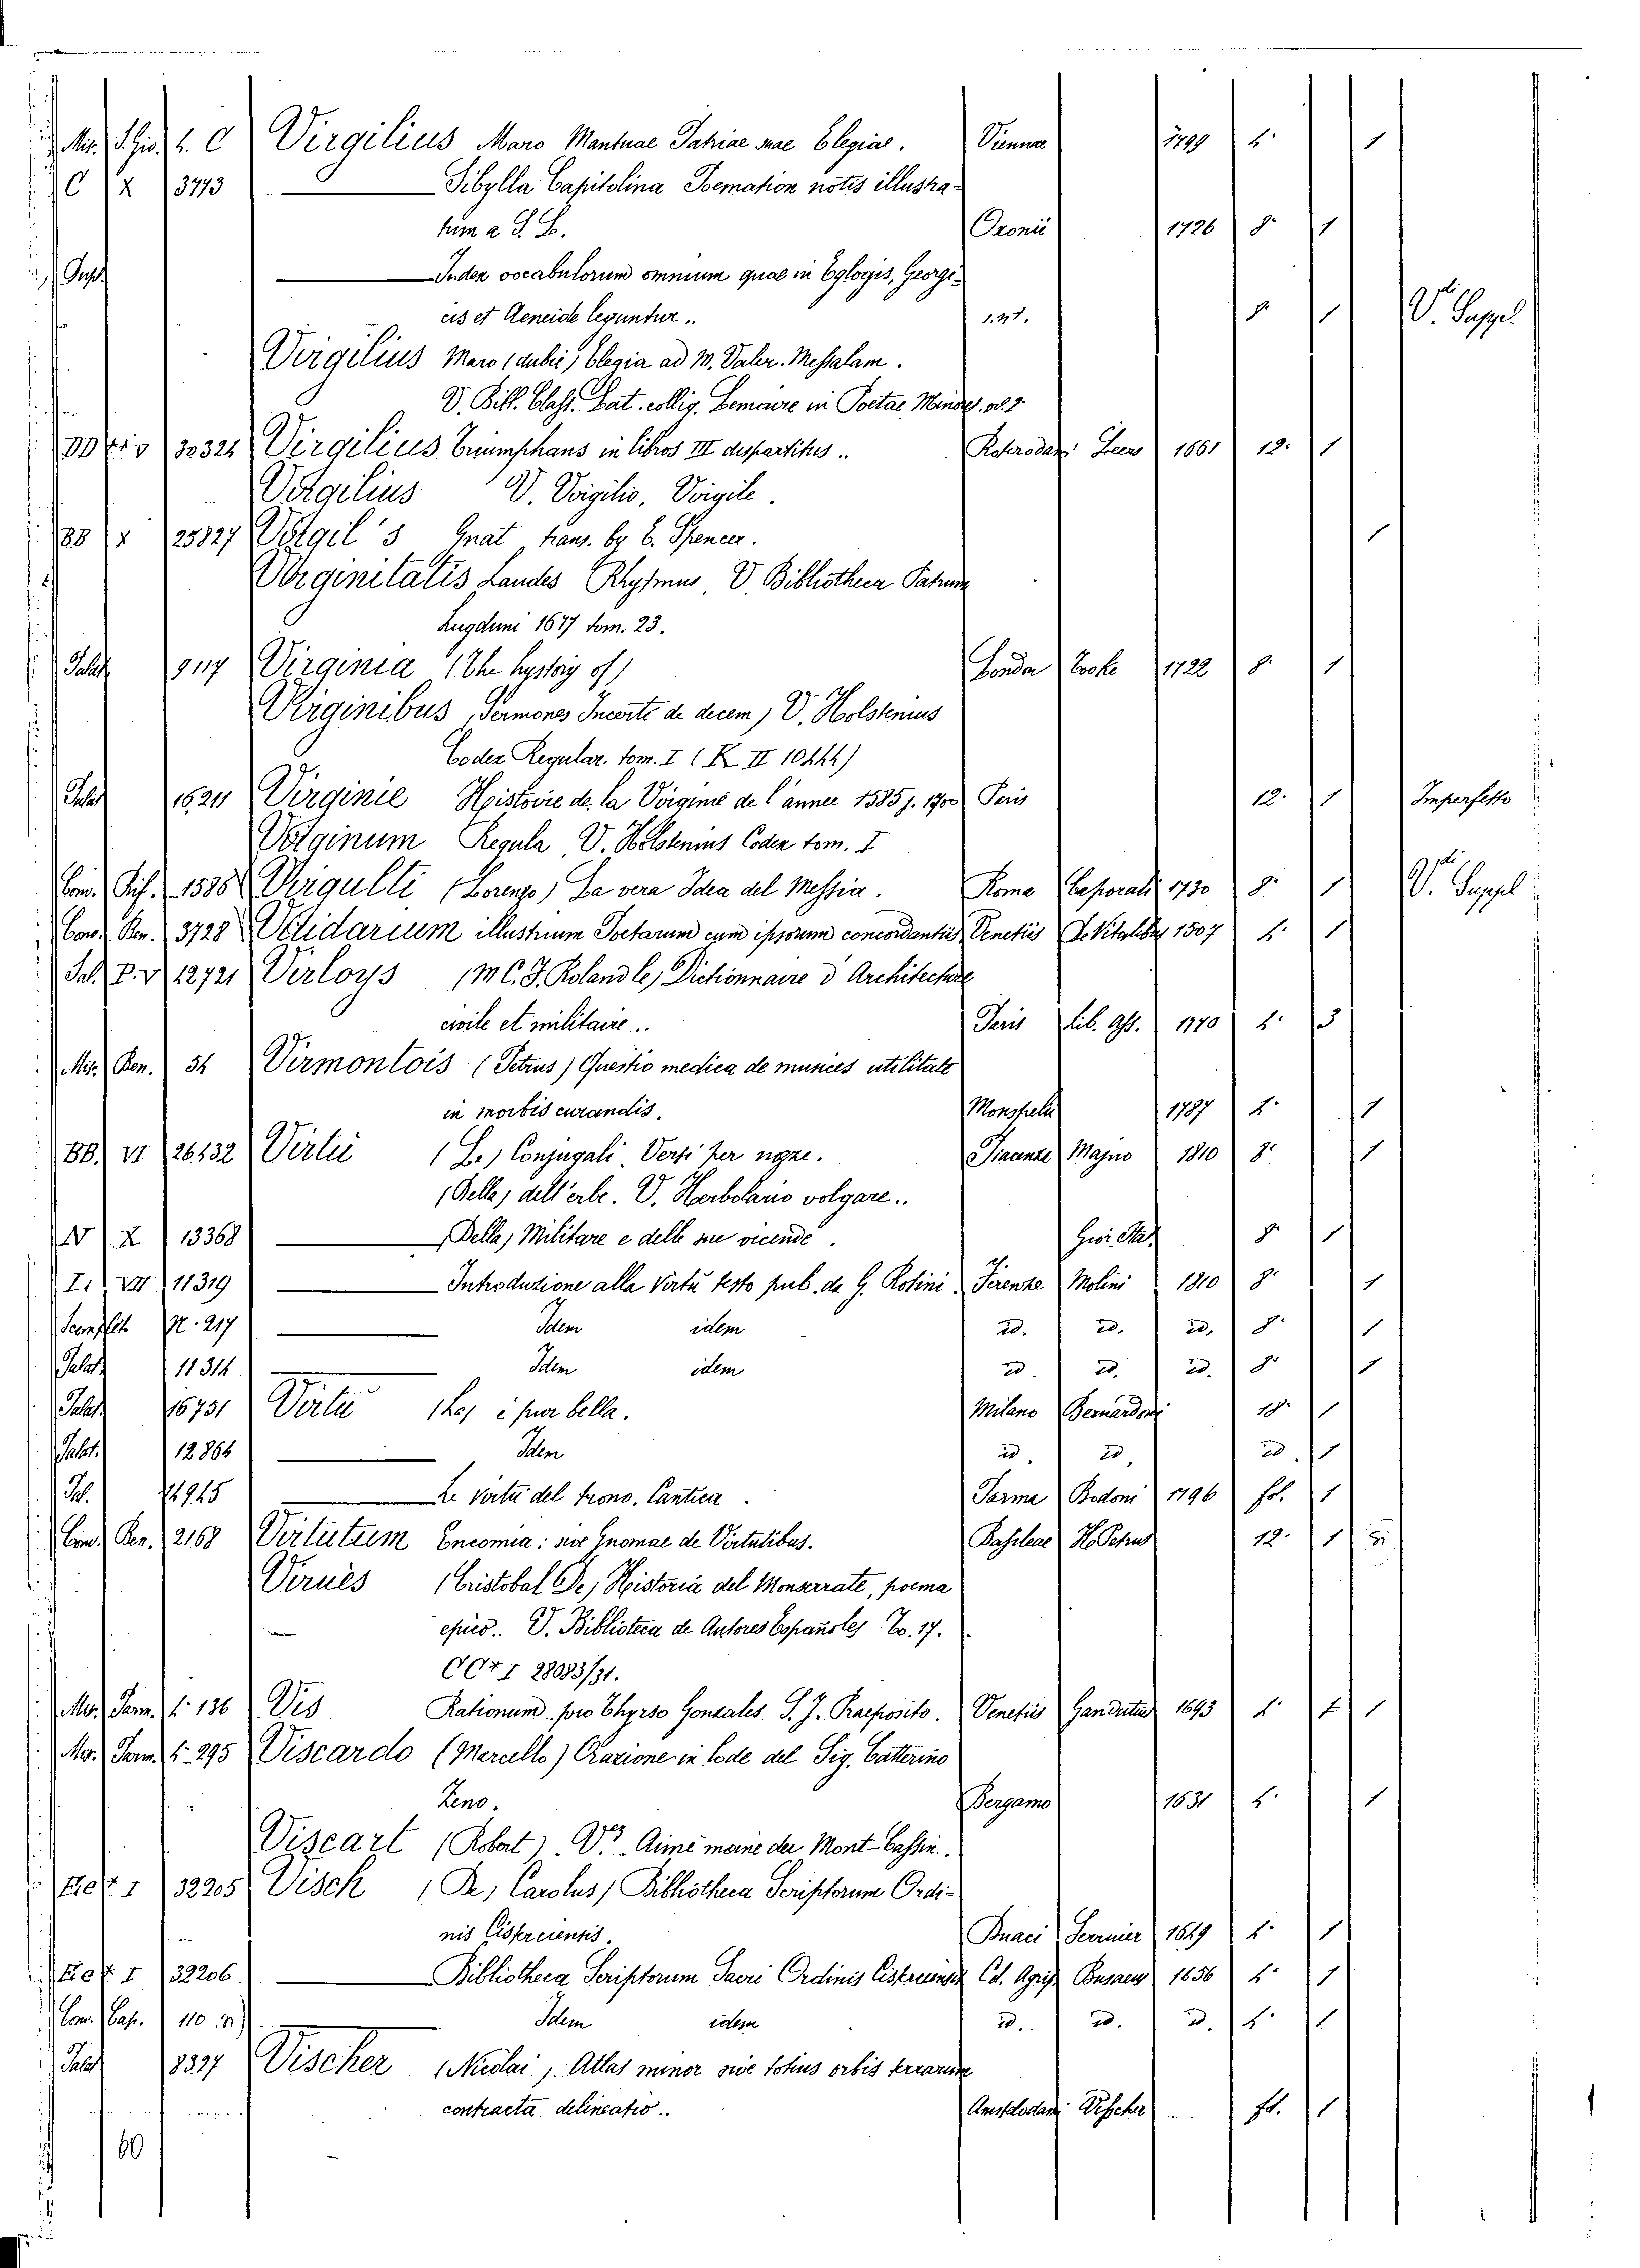 Virgilius Maro Mantuae Patriae suae Elegiae. Vienna 1799 4. 1
C X 3773 Sibylla Capitolina Poemation notis illustra-
tum a S. L. Oxonii 1726 8. 1
Index vocabulorum omnium quae in Eglogis, Georgi-
cis et Aeneide leguntur. 8. 1 V. Suppl
Virgilius Maro (dubii) Elegia ad M. Valer. Messalam.
V. Bibl. Class. Lat. collig. Lemaire in Poetae Minores vol. 2
32321 Virgilius Triumphans in libros III dispartitus. Roterodami Leers 1661 12. 1
Virgilius V. Virgilio, Virgile.
BB X 25827 Virgil's Gnat, trans. by E. Spencer. 1
Virginitatis Laudes Rhytmus, V. Bibliotheca Patrum
Lugduni 1677 tom. 23.
Palat 9117 Virginia (The hystory of) London Cooke 1722 8. 1
Virginibus (Sermones Incerti de decem) V. Holstenius
Codex Regular. tom. I (K II 10444)
Palat 16211 Virginie Histoire de la Virginie de l'annee 1585 j. 1700 Paris 12. 1 Imperfetto
Virginum Regula V. Holstenius Codex tom. I
Virgulti (Lorenzo) La vera Idea del Messia. Roma Caporali 1730 8. 1 V. Suppl
Cons. Ren. 3728 Viridarium illustrium Poetarum cum ipsorum concordantiis Venetiis De Vitalibus 1507 4. 1
12721 Virloys (M C. F. Roland le) Dictionnaire d'Architecture
civile et militaire. Paris Lib. Ass. 1770 4. 3
Mis. Ren. 34 Virmontois (Petrus) Questio medica de musices utilitate
in morbis curandis. Monspelii 1787 4. 1
BB. VI 26132 Virtù (Le) Conjugali. Versi per nozze. Piacenza Majno 1810 8. 1
(Delle) dell'erbe. V. Herbolario volgare.
N X 13368 (Della) Militare e delle sue vicende. 8. 1
I. VII 11319 Introduzione alla Virtù testo pub. da G. Rosini. Firenze Molini 1810 8. 1
217 Idem idem id. id. id. 8. 1
Palat. 11314 Idem idem id. id. id. 8. 1
Palat 16751 Virtù (La) è pur bella. Milano Bernardoni 18. 1
Palat. 12864 Idem id. id. id. 1
Pal. 14945 Le Virtù del trono. Cantica. Parma Bodoni 1796 fol. 1
Cons. Ren. 2168 Virtutum Encomia: sive Gnomae de Virtutibus. Basileae H. Petrus 12. 1
Virues (Cristobal De) Historia del Monserrate, poema
epico. V. Biblioteca de Autores Españoles To. 17.
I 28083/31.
Mis. Parm. f. 136 Vis Rationum pro Thyrso Gonzales S. J. Praeposito. Venetiis 1693 4. 1
Mis. Parm. f. 295 Viscardo (Marcello) Orazione in lode del Sig. Catterino
Zeno. Bergamo 1631 4. 1
Viscart (Robert). V. Aimé moine du Mont-Cassin.
I 32205 Visch (De) Carolus) Bibliotheca Scriptorum Ordi-
nis Cisterciensis. Duaci Serrurier 1649 4. 1
I 32206 Bibliotheca Scriptorum Sacri Ordinis Cisterciensis Col. Agrip. Busaeus 1656 4. 1
Com. Cap. 110 Idem idem id. id. id. 4. 1
Palat 8327 Vischer (Nicolai) Atlas minor sive totius orbis terrarum
contracta delineatio. Amstelodami Visscher fol. 1
60